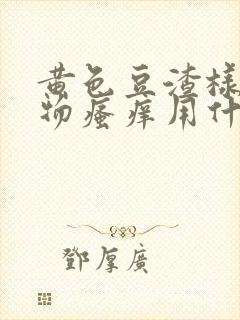 黄色豆渣样
物瘙痒用什
鄧厚廣